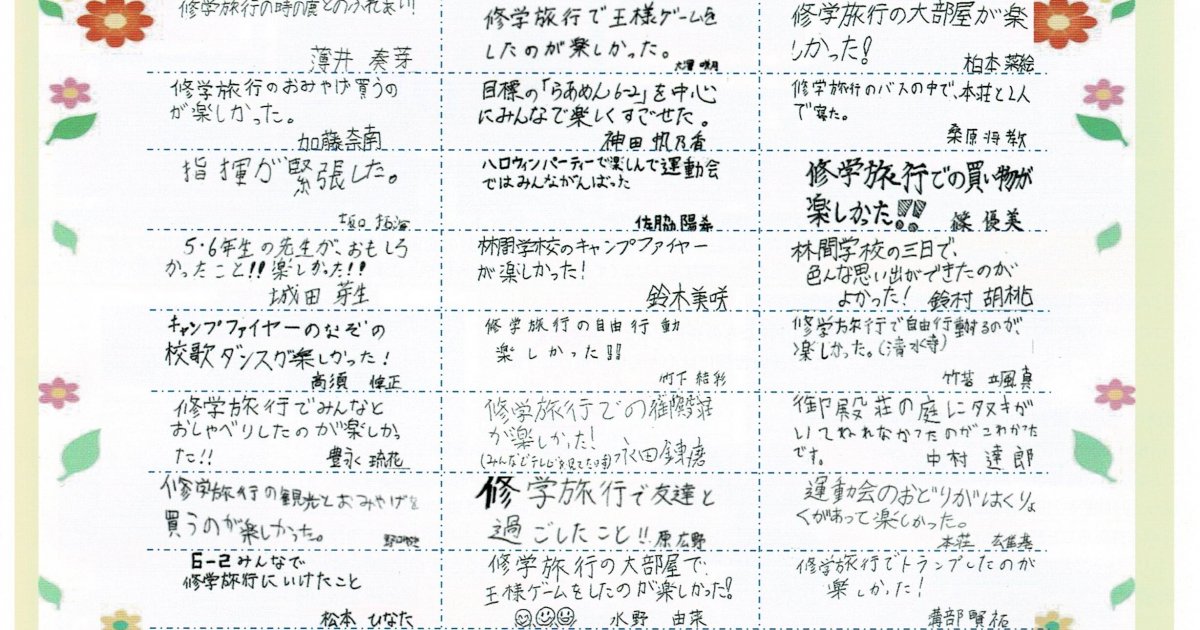 修学旅行の時の鹿とのふれあい!
薄井 奏芽
修学旅行で王様ゲームを
したのが楽しかった。
修学旅行の大部屋が楽
しかった!
柏本 菜絵
修学旅行のおみやげ買うの
が楽しかった。
加藤奈南
目標の「らあめん6-2」を中心
にみんなで楽しくすごせた。
神田 帆乃香
修学旅行のバスの中で、本荘と2人
で寝た。
桑原 将教
指揮が緊張した。
坂口
ハロウィンパーティーで楽しんで運動会
ではみんながんばった
佐脇 陽希
修学旅行での買い物が
楽しかった!!
篠 優美
5・6年生の先生が、おもしろ
かったこと!!楽しかった!!
城田 芽生
林間学校のキャンプファイヤー
が楽しかった!
鈴木美咲
林間学校の三日で、
色んな思い出ができたのが
よかった! 鈴村 胡桃
キャンプファイヤーのなぞの
校歌ダンスが楽しかった!
高須 倖正
修学旅行の自由行動
楽しかった!!
竹下 結彩
修学旅行で自由行動するのが、
楽しかった。(清水寺)
竹苔 颯真
修学旅行でみんなと
おしゃべりしたのが楽しかっ
た!!
豊永 琉花
修学旅行での御殿荘
が楽しかった!
(みんなでテレビを見てた時) 永田 錬磨
御殿荘の庭にタヌキが
いてねれなかったのがこわかった
です。 中村 達郎
修学旅行の観光とおみやげを
買うのが楽しかった。
修学旅行で友達と
過ごしたこと!! 原 広野
運動会のおどりがはくりょ
くがあって楽しかった。
本荘
6-2みんなで
修学旅行にいけたこと
松本 ひなた
修学旅行の大部屋で、
王様ゲームをしたのが楽しかった!
水野 由菜
修学旅行でトランプしたのが
楽しかった!
溝部 賢祐